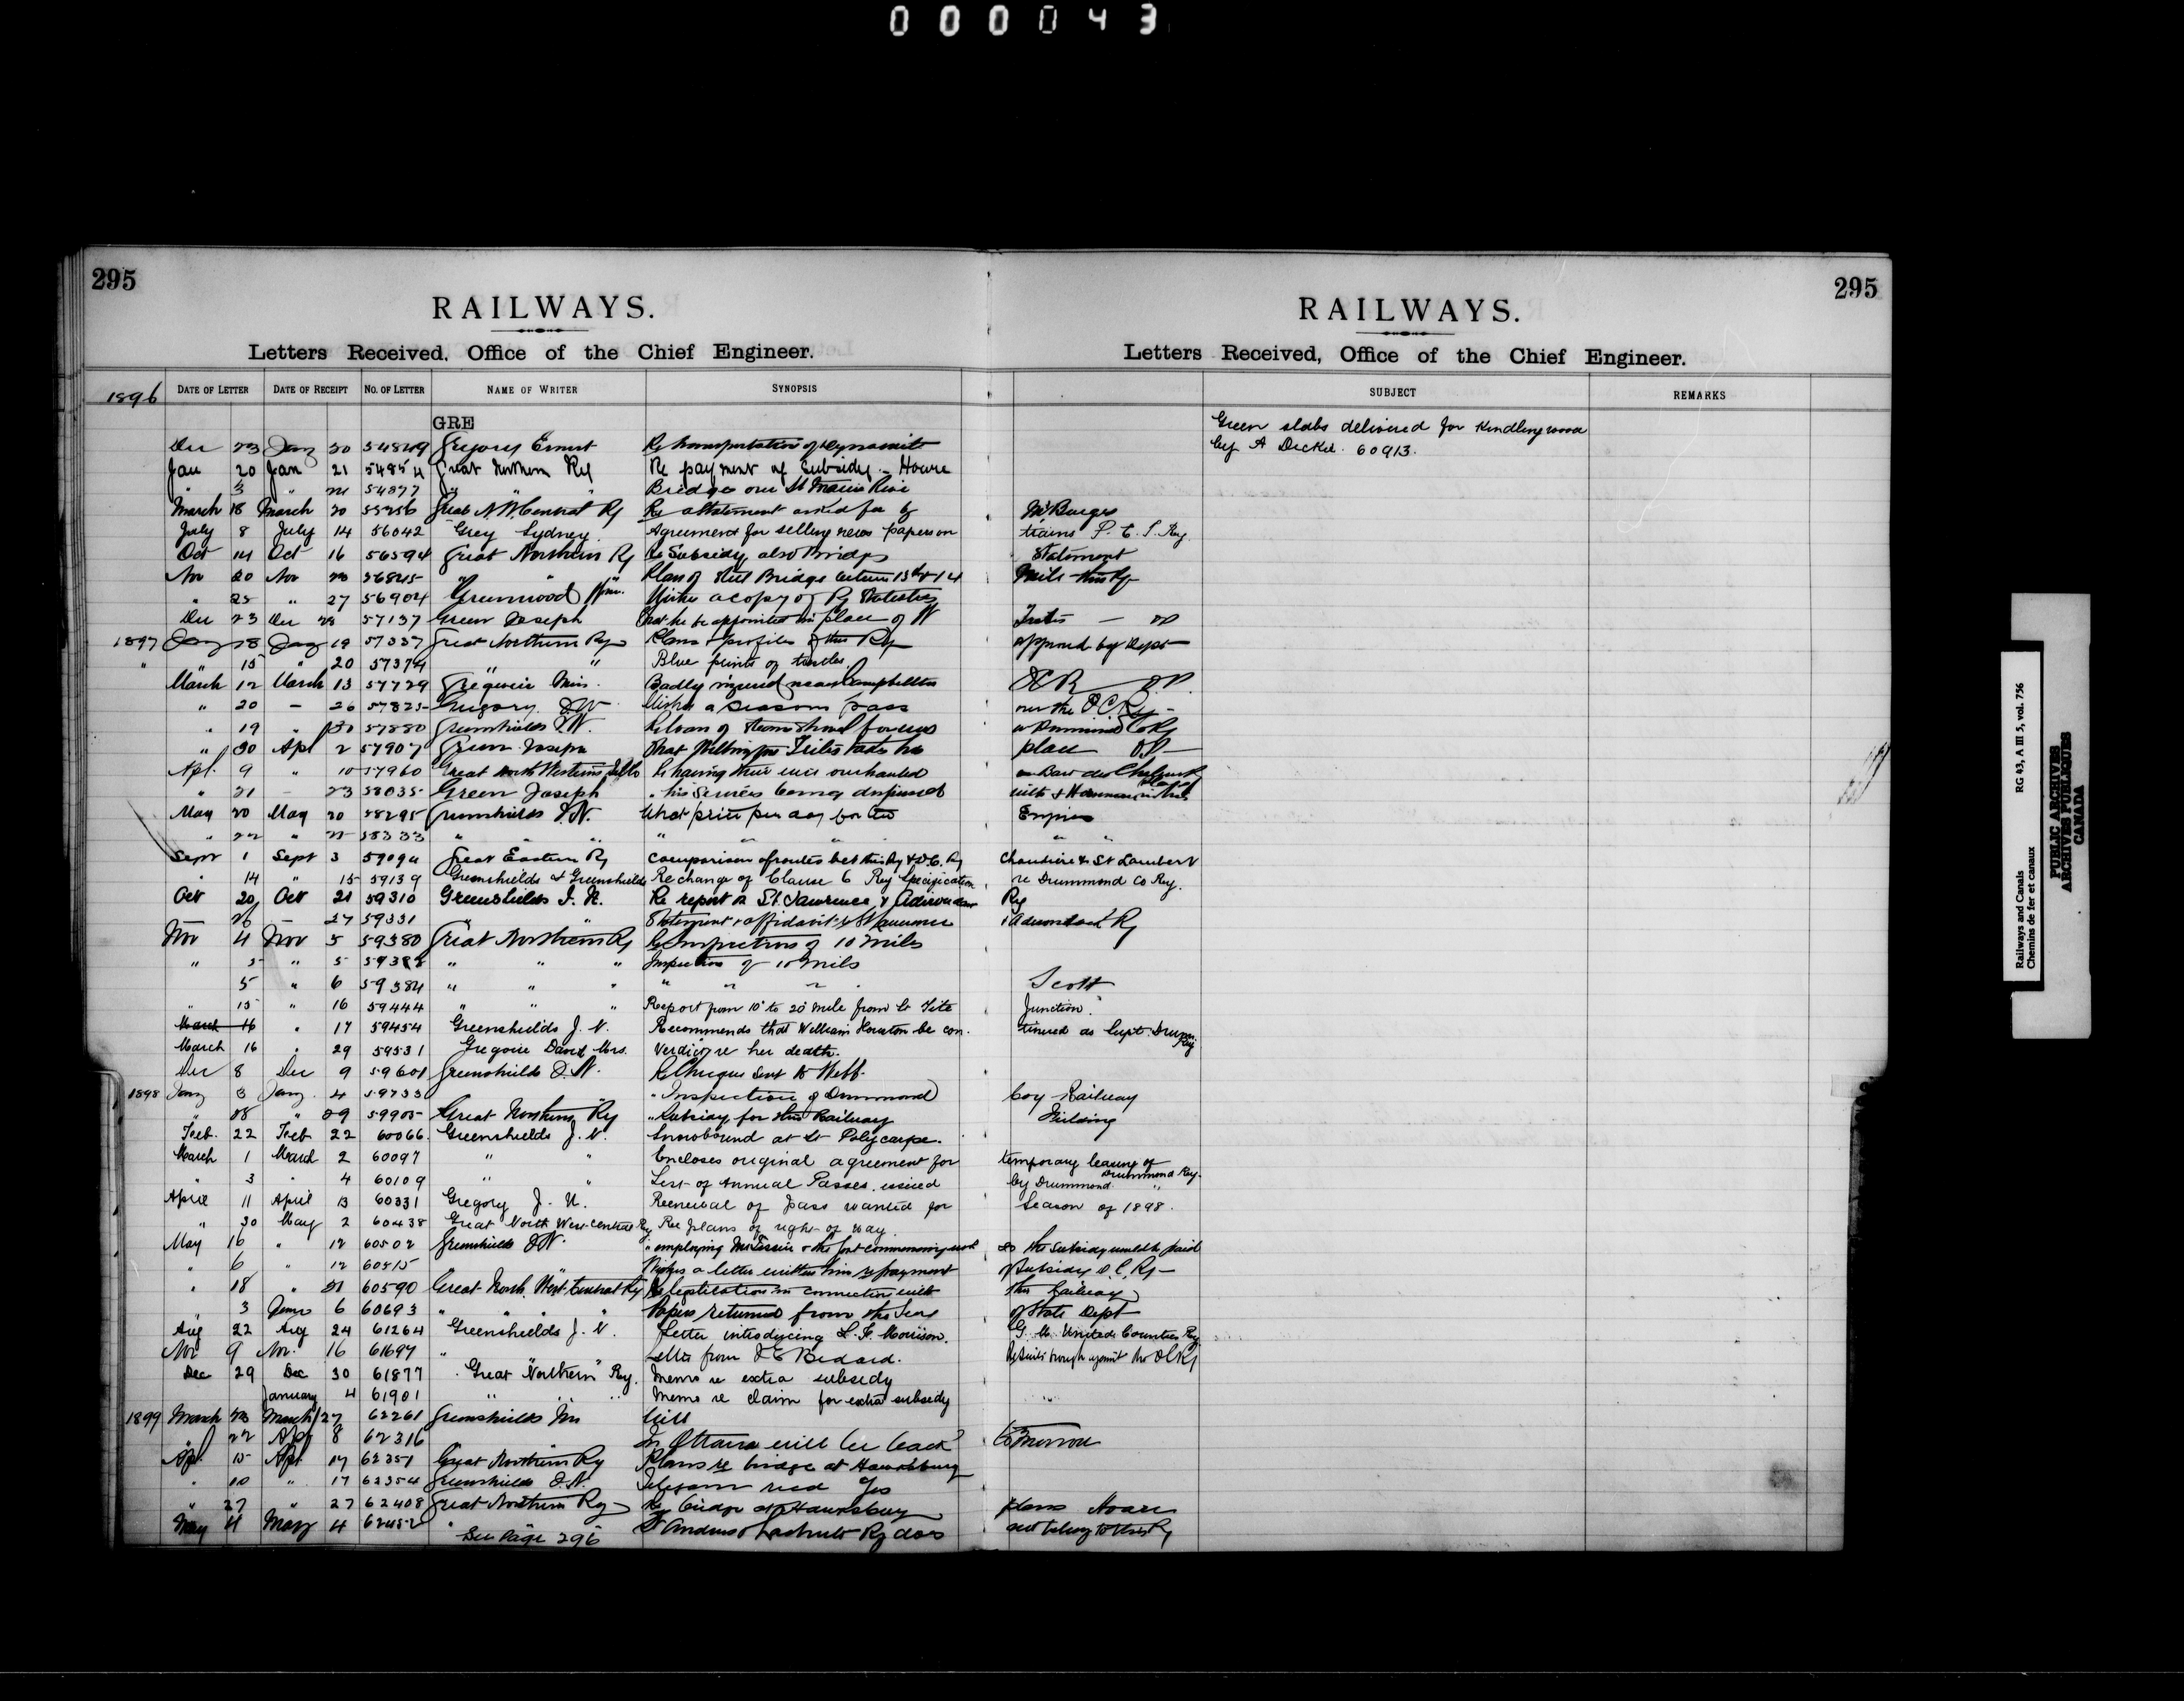 000043
295
RAILWAYS.
Letters Received, Office of the Chief Engineer.
295
RAILWAYS.
Letters Received, Office of the Chief Engineer.
1896 DATE OF LETTER DATE OF RECEIPT NO. OF LETTER NAME OF WRITER SYNOPSIS SUBJECT REMARKS
GRE
Green slabs delivered for Kindling wood
by A Decker. 60913.
Dec 23 Jany 20 54849 Gregory Ernest Re transportation of Dynamite
Jan 20 Jan 21 54854 Great Northern Ry Re payment of Subsidy - Howe
3 " 54877 " " " Bridges over St Maurice River
March 18 March 20 55256 Great N.W. Central Ry Re statement asked for by Mr Burges
July 8 July 14 56042 Grey Sydney. Agreement for selling news papers on trains P. E. I. Ry
Oct 14 Oct 16 56594 Great Northern Ry Re Subsidy also Bridges Statement
Nov 20 Nov 23 56845 " " " Plan of Steel Bridge between 13th & 14 Mile this Ry
" 25 " 27 56904 Greenwood Wm. Wishes a copy of Ry Statistics
Dec 23 Dec 28 57137 Green Joseph That he be appointed in place of W
1897 Jany 18 Jany 19 57337 Great Northern Ry Plans & profiles of this Ry approved by Dept
" " 15 " 20 57374 " " Blue prints of trestles
March 12 March 13 57729 Gregoire Mrs. Badly injured near Campbellton
" 20 - 26 57825 Gregory J.W Wishes a season pass over the ICRy -
" 19 " 30 57880 Greenshields J.N. Re loan of steam shovel for use
" 30 Apl 2 57907 Green Joseph place
Apl. 9 " 10 57960 Great North Western Tel Co Re having their wire overhauled
" 21 - 23 58035 Green Joseph " his services being dispensed with &
May 20 May 20 58295 Greenshields J.N. What price per day for two Engines
" 22 " 22 58333 " " " " " " " "
Sept 1 Sept 3 59094 Great Eastern Ry Comparison of routes bet this Ry & D.C. Ry Chaudiere & St Lambert
" 14 " 15 59139 Greenshields & Greenshields Re change of Clause 6 Ry Specification re Drummond Co Ry.
Oct 20 Oct 21 59310 Greenshields J. N. Re report on St. Lawrence & Adirondack Ry
26 - 27 59331 " " Statement & affidavit St Lawrence & Adirondack Ry
Nov 4 Nov 5 59380 Great Northern Ry Re Inspection of 10 miles
" 5 " 5 59383 " " " Inspection of 10 Mils
5 " 6 59384 " " " " " " Scott
" 15 " 16 59444 " " " Report from 10 to 20 mile from St Tite Junction.
March 16 " 17 59454 Greenshields J. N. Recommends that William Houston be con- tinued as Supt. Drumm. Ry
March 16 " 29 59531 Gregoire David Mrs. Verdict re her death.
Dec 8 Dec 9 59601 Greenshields J. N. Re Cheque sent to Webb
1898 Jany 3 Jany 4 59733 " Inspection of Drummond Coy Railway
" 28 " 29 59905 Great Northern Ry " Subsidy for this Railway
Feb. 22 Feb 22 60066 Greenshields J. N. Snowbound at St Polycarpe.
March 1 March 2 60097 " " Encloses original agreement for temporary leasing of Drummond Ry.
" 3 " 4 60109 " " List of Annual Passes issued by Drummond "
April 11 April 13 60331 Gregory J. U. Renewal of Pass wanted for Season of 1898.
" 30 May 2 60438 Great North West Central Ry Re plans of right of way
May 10 " 12 60502 Greenshields J.N. " employing
" 6 " 12 60515 Wishes a letter written him re payment of Subsidy D.C. Ry -
" 18 " 21 60590 Great North West Central Ry Re legislation in connection with this Railway
" 3 June 6 60693 " " " " Papers returned from the Secy of State Dept
Aug 22 Aug 24 61264 Greenshields J. N. Letter introducing L. F. Morrison. G. M. United Counties Ry
Nov 9 Nov. 16 61697 " " Letter from J E Bedard.
Dec 29 Dec 30 61877 Great Northern Ry. Memo re extra subsidy
January 4 61901 " " " Memo re claim for extra subsidy
1899 March 23 March 27 62261 Greenshields Mr Will
" 22 Apl 8 62316 In Ottawa will be back tomorrow
Apl 15 Apl 17 62351 Great Northern Ry Plans re bridge at Hawkesbury
" 10 " 17 62354 Greenshields J.N. Telegram recd Yes
" 27 " 27 62408 Great Northern Ry Re bridge at Hawkesbury plans Hoare
May 4 May 4 62452 " St Andrews & Lachute Ry does not belong to this Ry
See Page 296
Railways and Canals RG 43, A III 5, vol. 756
Chemins de fer et canaux
PUBLIC ARCHIVES
ARCHIVES PUBLIQUES
CANADA